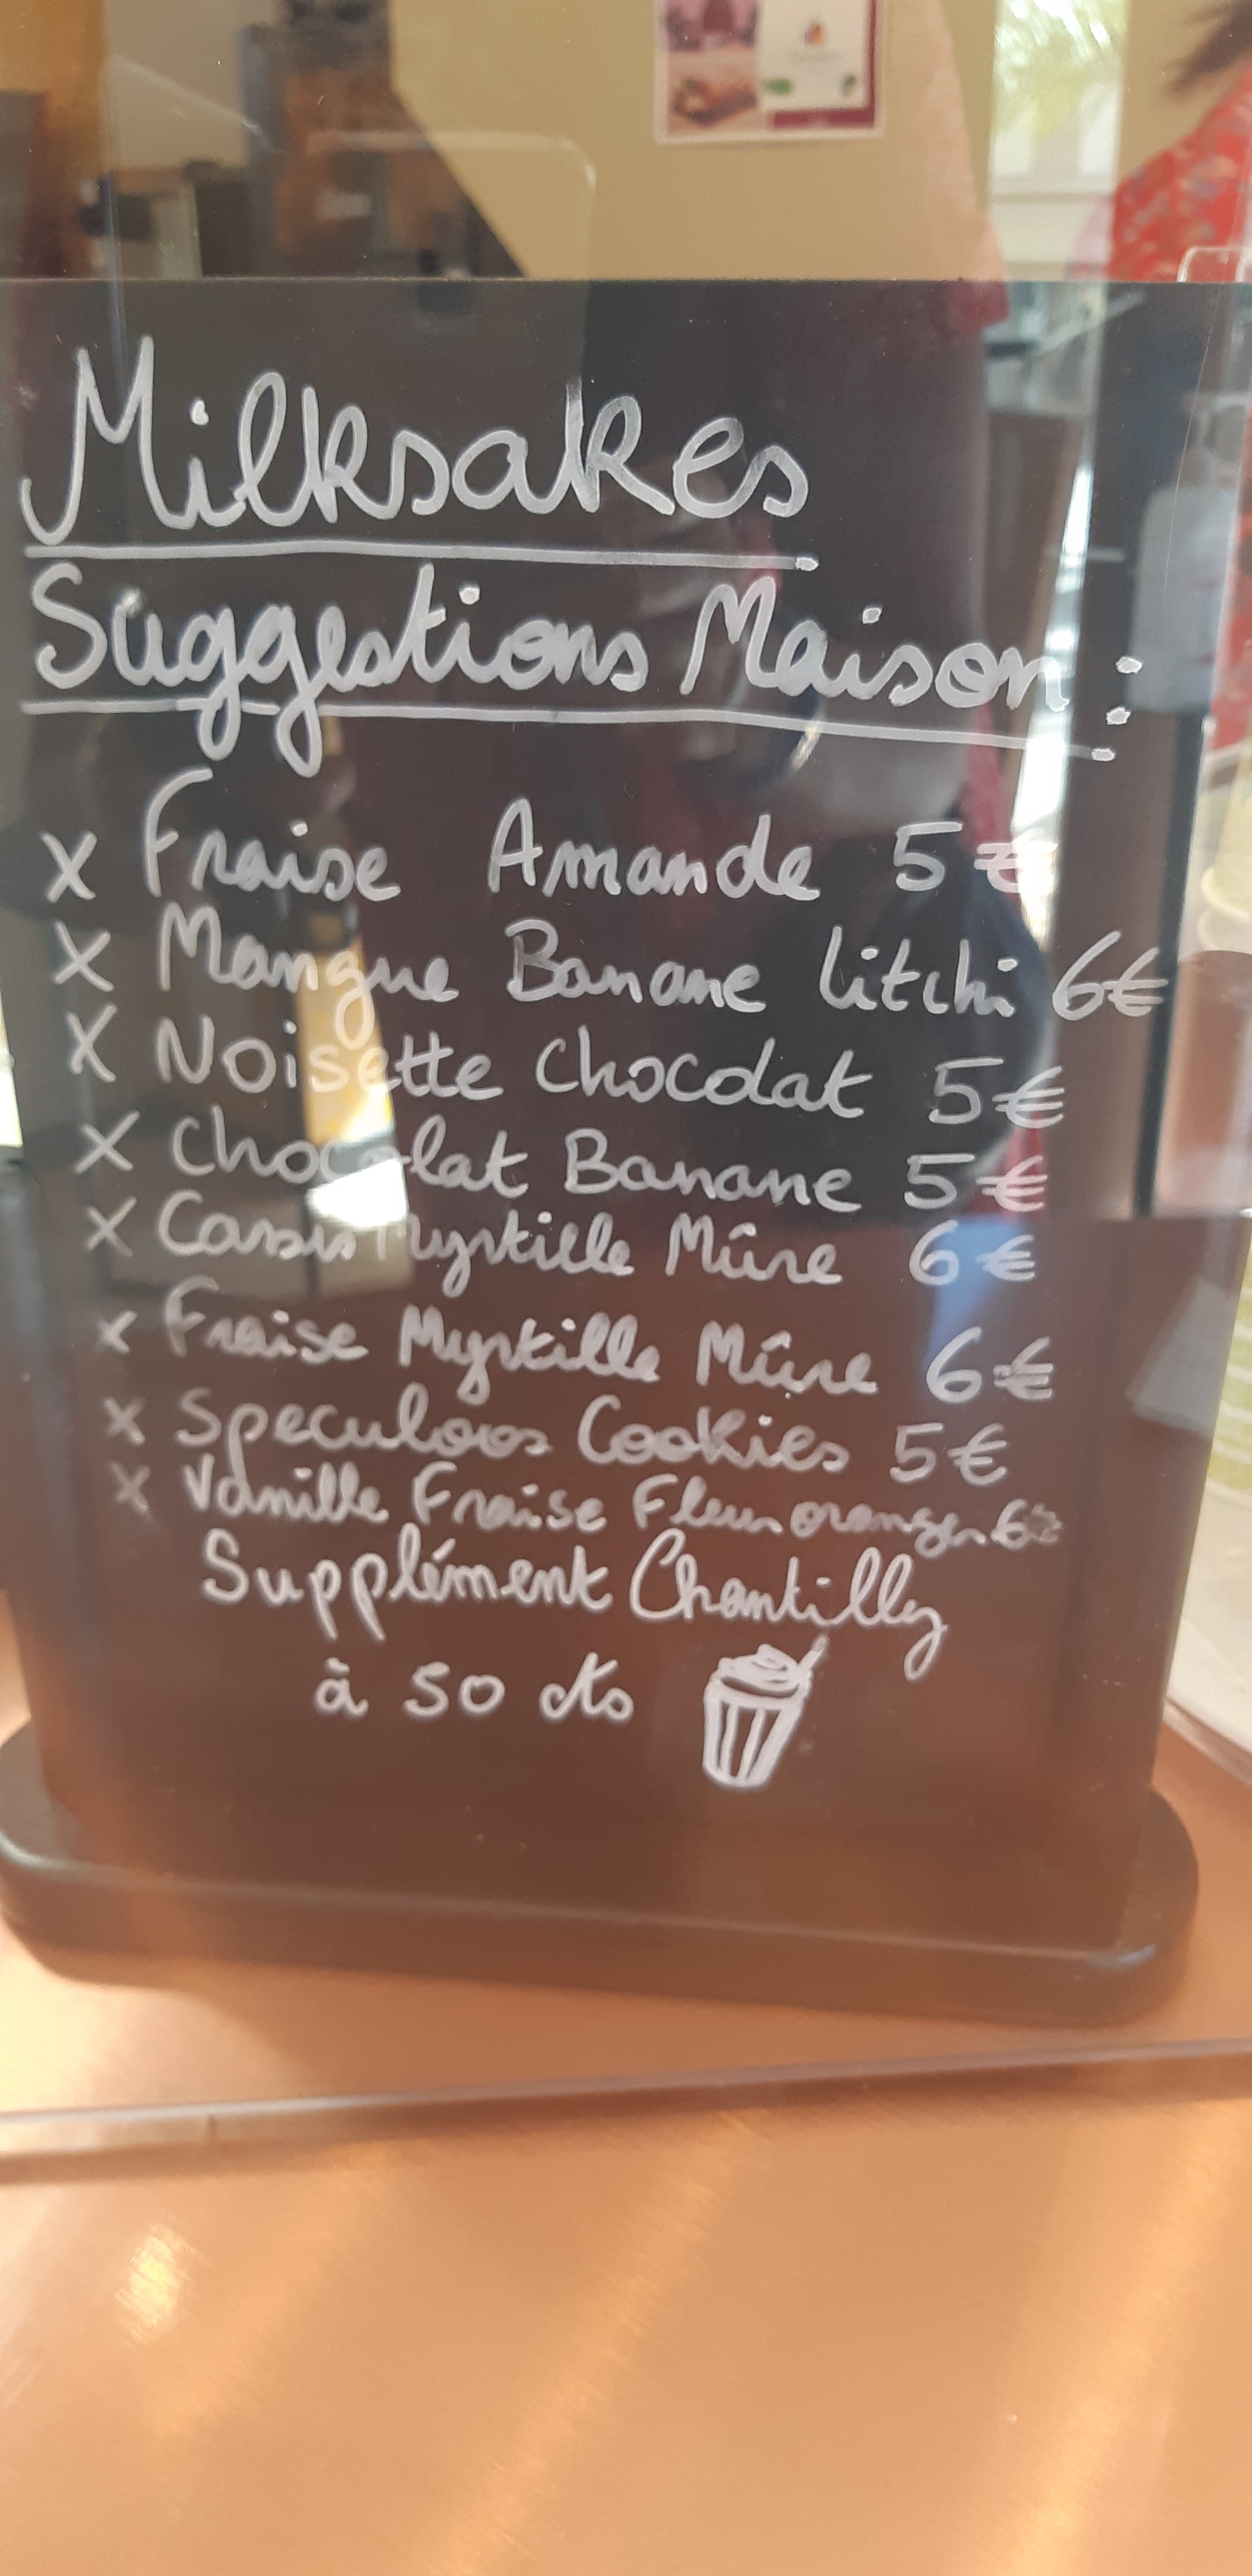 Milksakes
Suggestions Maison :
x Fraise Amande 5€
x Mangue Banane litchi 6€
x Noisette chocolat 5€
x chocolat Banane 5€
x Cassis Myrtille Mûre 6€
x Fraise Myrtille Mûre 6€
x Speculoos Cookies 5€
x Vanille Fraise Fleur oranger 6€
Supplément Chantilly
à 50 cts